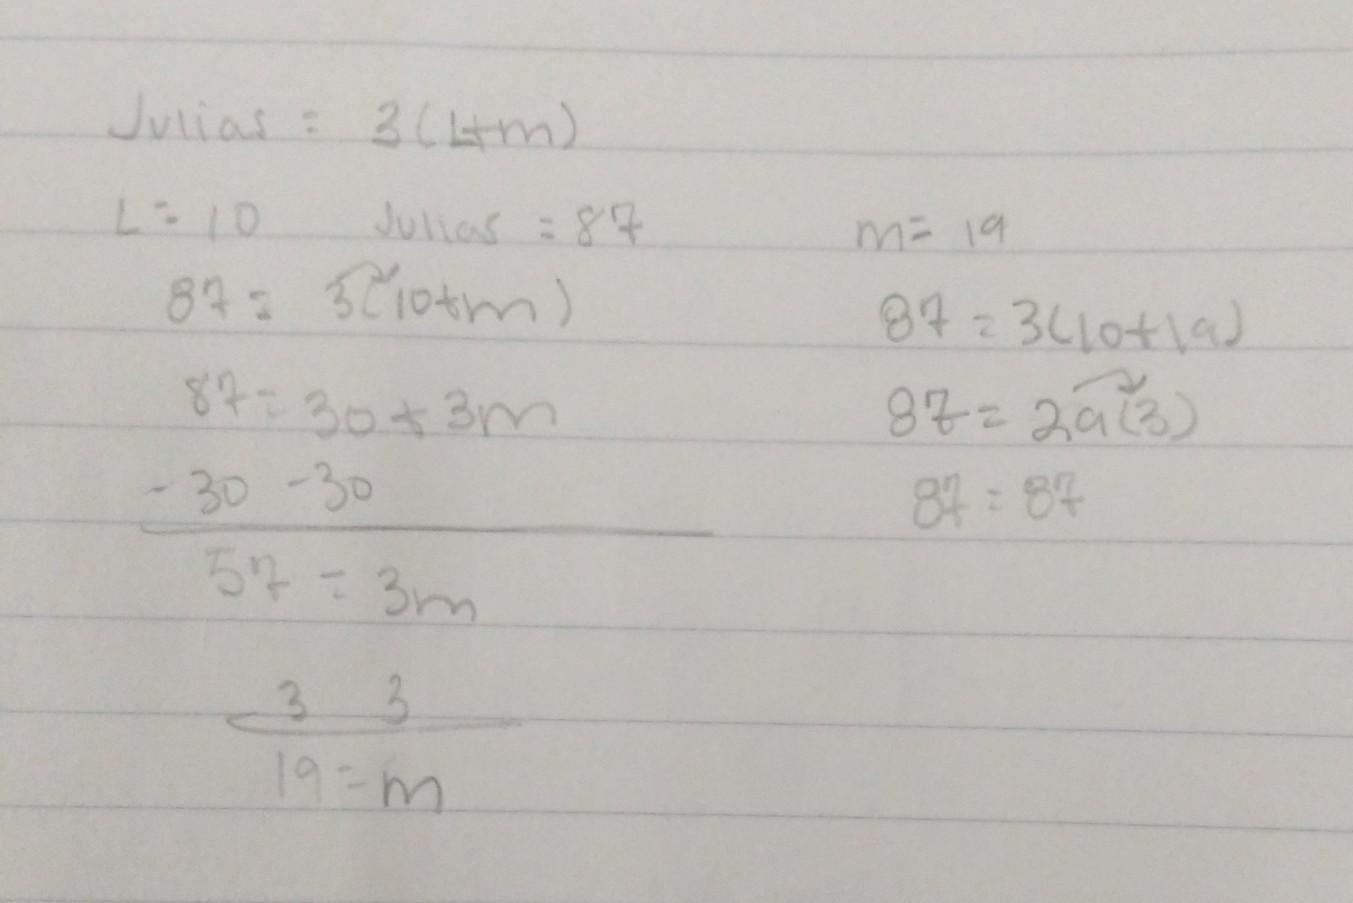 Julias = 3(L+m)
L = 10 Julias = 87
87 = 3(10+m)
87 = 30 + 3m
-30 -30
57 = 3m
3 3
19 = m
m = 19
87 = 3(10+19)
87 = 29(3)
87 = 87